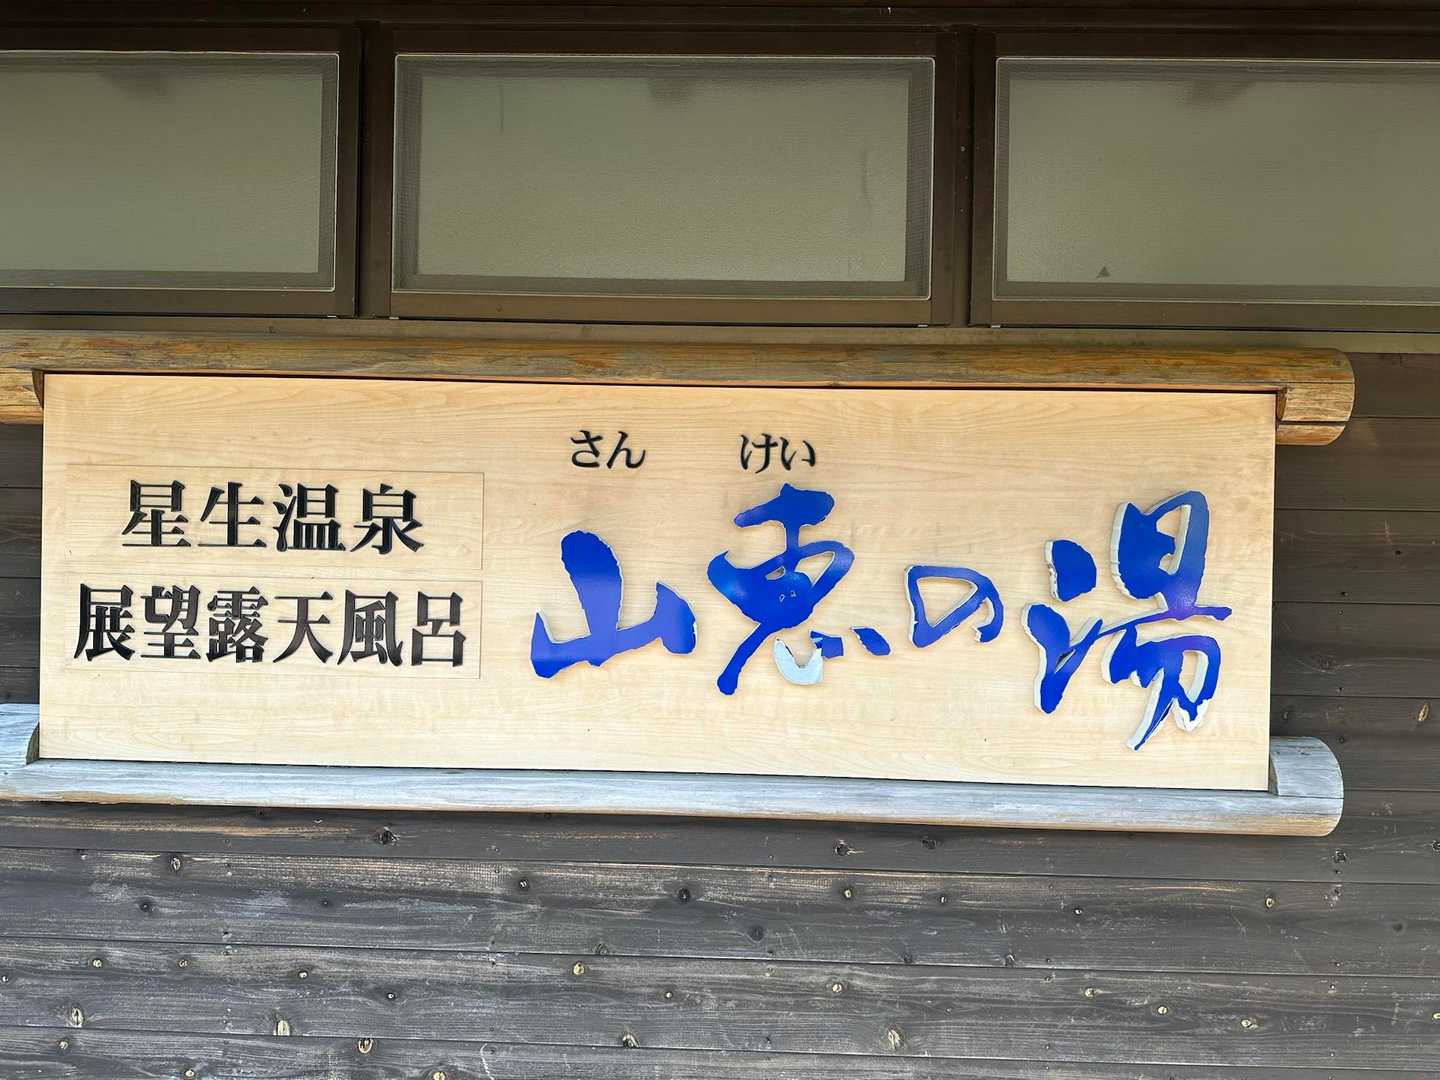 星生温泉
展望露天風呂
さん けい
山恵の湯